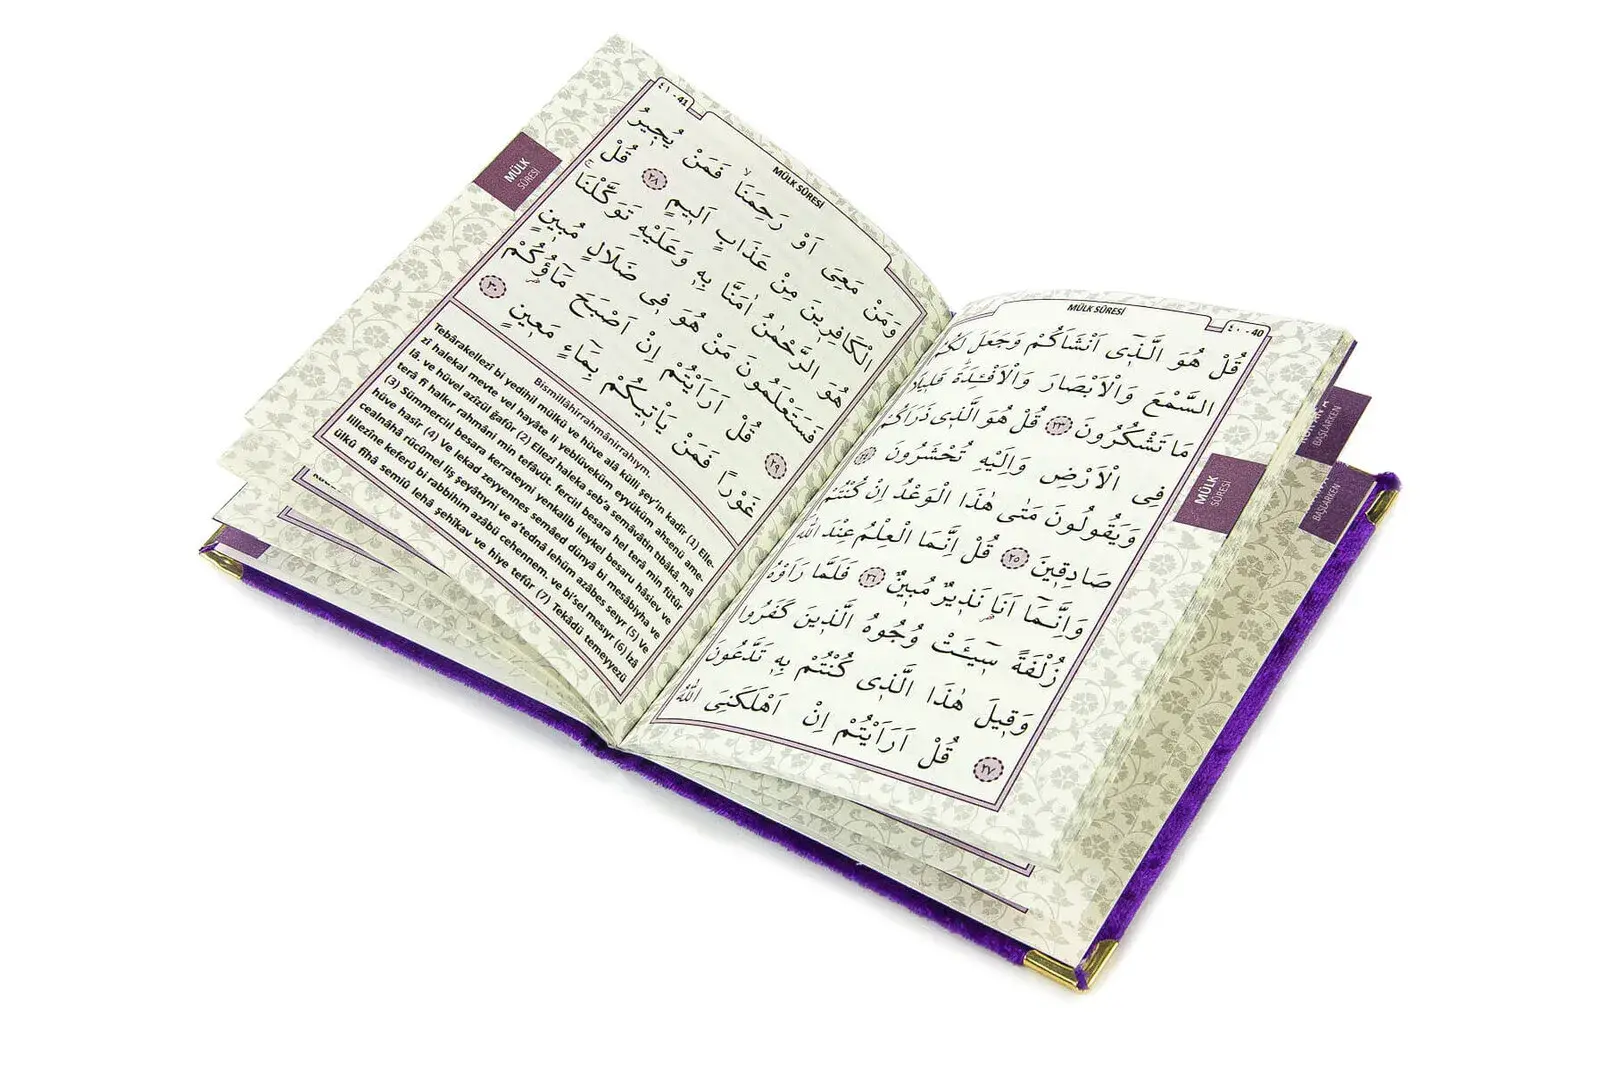 MÜLK SÛRESİ
٤٠ - 40
قُلْ هُوَ الَّذٖٓى اَنْشَاَكُمْ وَجَعَلَ لَكُمُ
السَّمْعَ وَالْاَبْصَارَ وَالْاَفْـِٔدَةَؕ قَلٖيلًا
مَا تَشْكُرُونَ ﴿٢٣﴾ قُلْ هُوَ الَّذٖى ذَرَاَكُمْ
فِى الْاَرْضِ وَاِلَيْهِ تُحْشَرُونَ
وَيَقُولُونَ مَتٰى هٰذَا الْوَعْدُ اِنْ كُنْتُمْ
صَادِقٖينَ ﴿٢٥﴾ قُلْ اِنَّمَا الْعِلْمُ عِنْدَ اللّٰهِ
وَاِنَّمَٓا اَنَا نَذٖيرٌ مُبٖينٌ ﴿٢٦﴾ فَلَمَّا رَاَوْهُ
زُلْفَةً سٖٓيـَٔتْ وُجُوهُ الَّذٖينَ كَفَرُوا
وَقٖيلَ هٰذَا الَّذٖى كُنْتُمْ بِهٖ تَدَّعُونَ
﴿٢٧﴾ قُلْ اَرَاَيْتُمْ اِنْ اَهْلَكَنِىَ اللّٰهُ
MÜLK
SÛRESİ
BAŞLARKEN
BAŞLARKEN
٤١ - 41
MÜLK SÛRESİ
وَمَنْ مَعِىَ اَوْ رَحِمَنَاۙ فَمَنْ يُجٖيرُ
الْكَافِرٖينَ مِنْ عَذَابٍ اَلٖيمٍ ﴿٢٨﴾ قُلْ
هُوَ الرَّحْمٰنُ اٰمَنَّا بِهٖ وَعَلَيْهِ تَوَكَّلْنَاۚ
فَسَتَعْلَمُونَ مَنْ هُوَ فٖى ضَلَالٍ مُبٖينٍ
﴿٢٩﴾ قُلْ اَرَاَيْتُمْ اِنْ اَصْبَحَ مَٓاؤُ۬كُمْ
غَوْرًا فَمَنْ يَاْتٖيكُمْ بِمَٓاءٍ مَعٖينٍ ﴿٣٠﴾
MÜLK
SÛRESİ
Bismillâhirrahmânirrahıym.
Tebârakellezî bi yedihil mülkü ve hüve alâ külli şey'in kadîr (1) Elle-
zî halekal mevte vel hayâte li yeblüveküm eyyüküm ahsenü ame-
lâ. ve hüvel azîzül ğafûr (2) Ellezî haleka seb'a semâvâtin tıbâkâ, mâ
terâ fî halkır rahmâni min tefâvüt. fercill besara hel terâ min fütûr
(3) Sümmerciıl besara kerrateyni yenkalib ileykel besaru hâsiev ve
hüve hasîr (4) Ve lekad zeyyennes semâed dünyâ bi mesâbiyha ve
cealnâhâ rücûmel liş şeyâtıyni ve a'tednâ lehüm azâbes seıyr (5) Ve
lillezîne keferû bi rabbihim azâbü cehennem. ve bi'sel mesıyr (6) İzâ
ülkû fîhâ semiû lehâ şehîkav ve hiye tefûr (7) Tekâdü temeyyezü